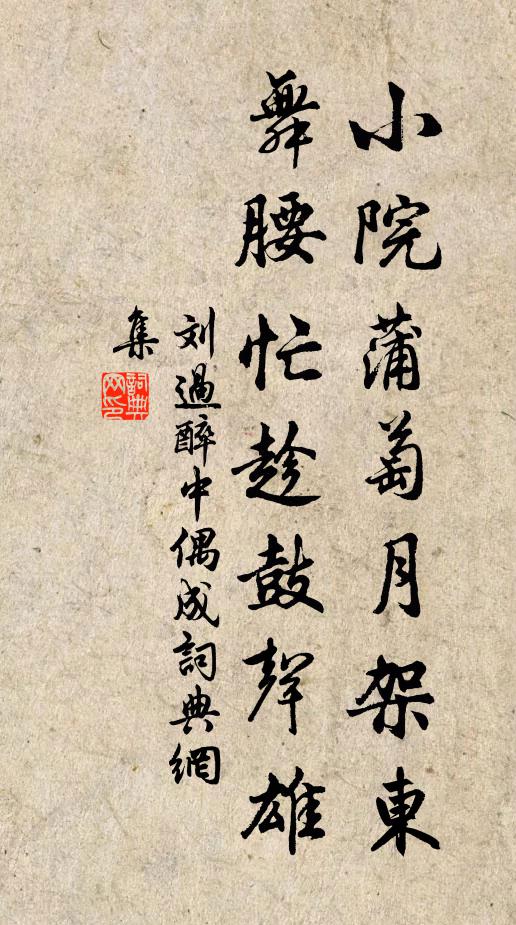 小院蒲萄月架東
舞腰忙趁鼓聲雄
刘過醉中偶成詞典網
集
詞典
网印